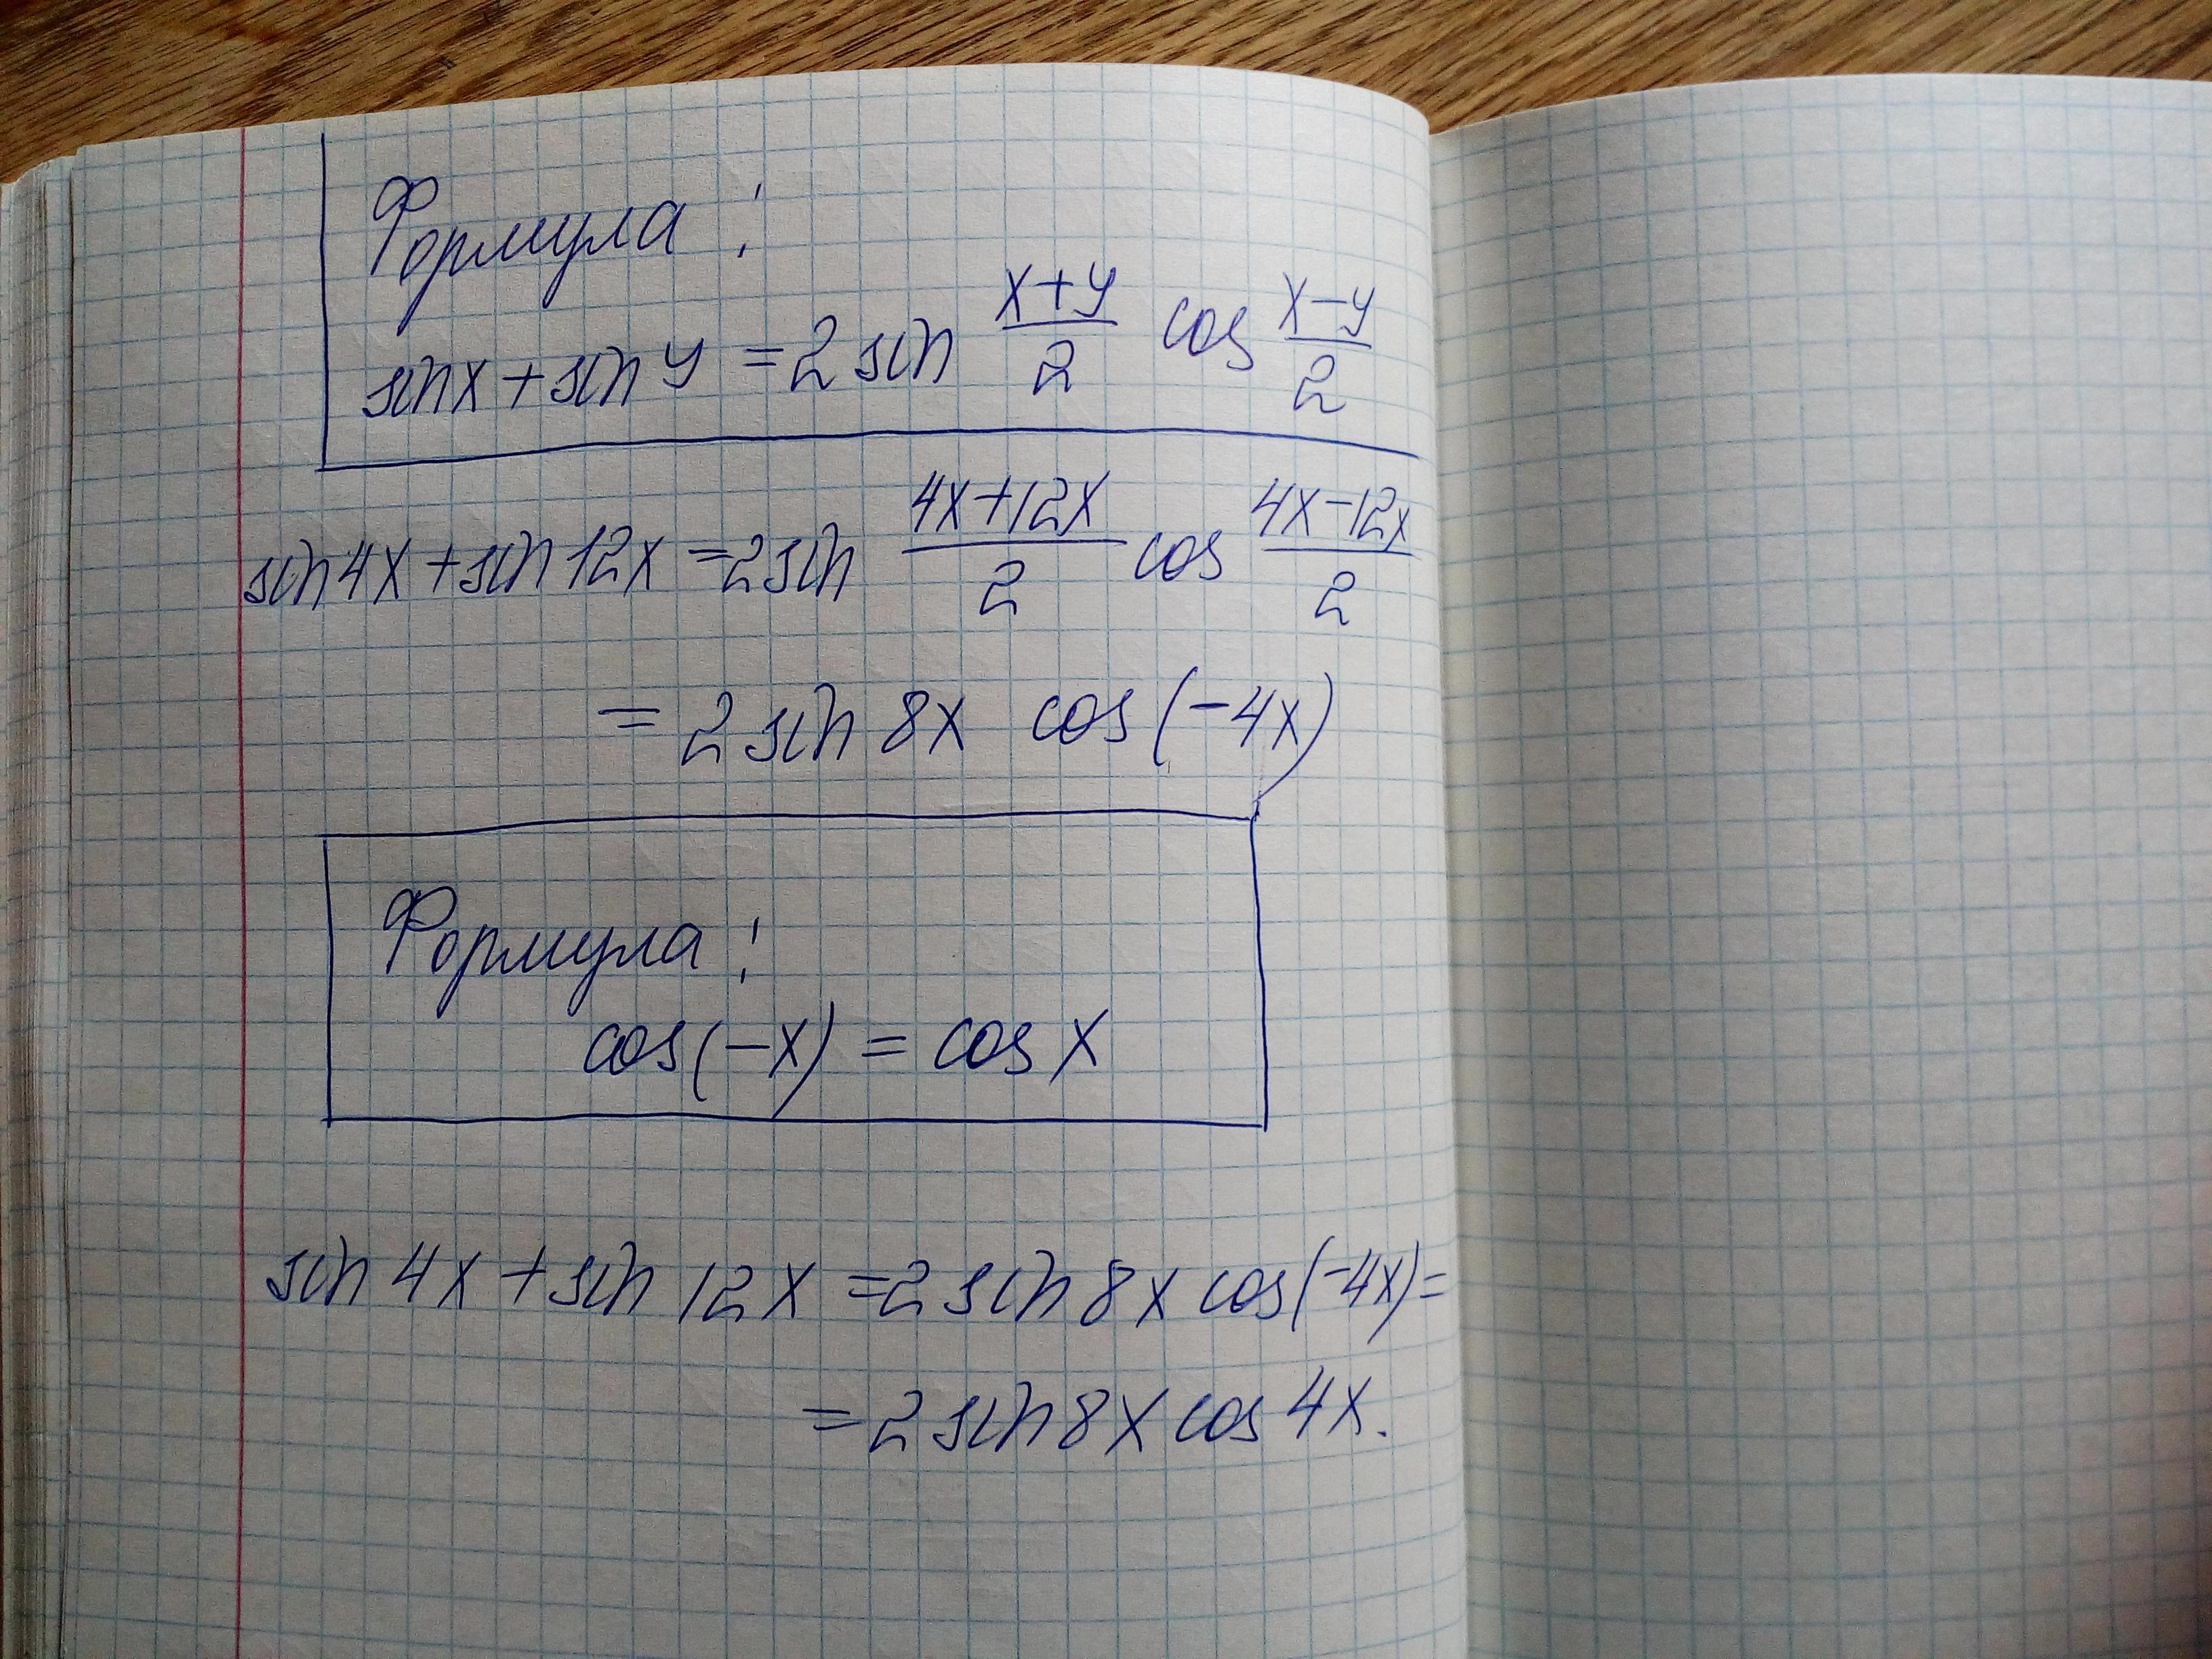 Формула:
sin x + sin y = 2 sin (x+y)/2 cos (x-y)/2
sin 4x + sin 12x = 2 sin (4x+12x)/2 cos (4x-12x)/2
= 2 sin 8x cos(-4x)
Формула:
cos(-x) = cos x
sin 4x + sin 12x = 2 sin 8x cos(-4x) =
= 2 sin 8x cos 4x.